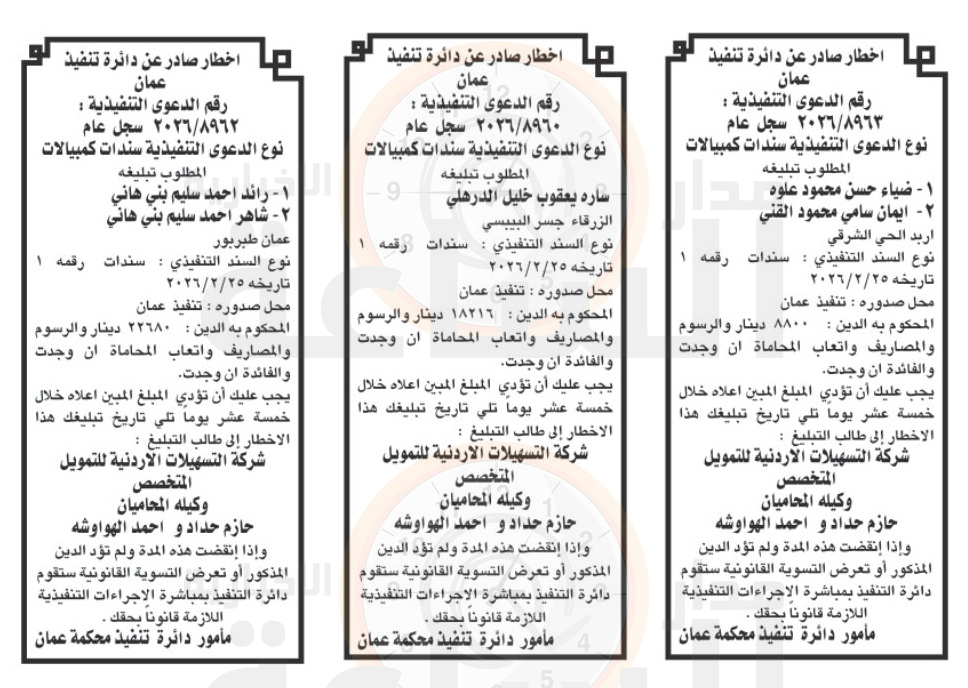 اخطار صادر عن دائرة تنفيذ
عمان
رقم الدعوى التنفيذية :
٢٠٢٦/٨٩٦٣ سجل عام
نوع الدعوى التنفيذية سندات كمبيالات
المطلوب تبليغه
١- ضياء حسن محمود علوه
٢- ايمان سامي محمود القني
اربد الحي الشرقي
نوع السند التنفيذي : سندات رقمه ١
تاريخه ٢٠٢٦/٢/٢٥
محل صدوره : تنفيذ عمان
المحكوم به الدين : ٨٨٠٠ دينار والرسوم
والمصاريف واتعاب المحاماة ان وجدت
والفائدة ان وجدت.
يجب عليك أن تؤدي المبلغ المبين اعلاه خلال
خمسة عشر يوماً تلي تاريخ تبليغك هذا
الاخطار إلى طالب التبليغ :
شركة التسهيلات الاردنية للتمويل
المتخصص
وكيله المحاميان
حازم حداد و احمد الهواوشه
وإذا إنقضت هذه المدة ولم تؤد الدين
المذكور أو تعرض التسوية القانونية ستقوم
دائرة التنفيذ بمباشرة الاجراءات التنفيذية
اللازمة قانوناً بحقك .
مأمور دائرة تنفيذ محكمة عمان
اخطار صادر عن دائرة تنفيذ
عمان
رقم الدعوى التنفيذية :
٢٠٢٦/٨٩٦٠ سجل عام
نوع الدعوى التنفيذية سندات كمبيالات
المطلوب تبليغه
ساره يعقوب خليل الدرهلي
الزرقاء جسر البيبسي
نوع السند التنفيذي : سندات رقمه ١
تاريخه ٢٠٢٦/٢/٢٥
محل صدوره : تنفيذ عمان
المحكوم به الدين : ١٨٢١٦ دينار والرسوم
والمصاريف واتعاب المحاماة ان وجدت
والفائدة ان وجدت.
يجب عليك أن تؤدي المبلغ المبين اعلاه خلال
خمسة عشر يوماً تلي تاريخ تبليغك هذا
الاخطار إلى طالب التبليغ :
شركة التسهيلات الاردنية للتمويل
المتخصص
وكيله المحاميان
حازم حداد و احمد الهواوشه
وإذا إنقضت هذه المدة ولم تؤد الدين
المذكور أو تعرض التسوية القانونية ستقوم
دائرة التنفيذ بمباشرة الاجراءات التنفيذية
اللازمة قانوناً بحقك .
مأمور دائرة تنفيذ محكمة عمان
اخطار صادر عن دائرة تنفيذ
عمان
رقم الدعوى التنفيذية :
٢٠٢٦/٨٩٦٢ سجل عام
نوع الدعوى التنفيذية سندات كمبيالات
المطلوب تبليغه
١- رائد احمد سليم بني هاني
٢- شاهر احمد سليم بني هاني
عمان طبربور
نوع السند التنفيذي : سندات رقمه ١
تاريخه ٢٠٢٦/٢/٢٥
محل صدوره : تنفيذ عمان
المحكوم به الدين : ٢٢٦٨٠ دينار والرسوم
والمصاريف واتعاب المحاماة ان وجدت
والفائدة ان وجدت.
يجب عليك أن تؤدي المبلغ المبين اعلاه خلال
خمسة عشر يوماً تلي تاريخ تبليغك هذا
الاخطار إلى طالب التبليغ :
شركة التسهيلات الاردنية للتمويل
المتخصص
وكيله المحاميان
حازم حداد و احمد الهواوشه
وإذا إنقضت هذه المدة ولم تؤد الدين
المذكور أو تعرض التسوية القانونية ستقوم
دائرة التنفيذ بمباشرة الاجراءات التنفيذية
اللازمة قانوناً بحقك .
مأمور دائرة تنفيذ محكمة عمان
مدار
الساعة
الإخبارية